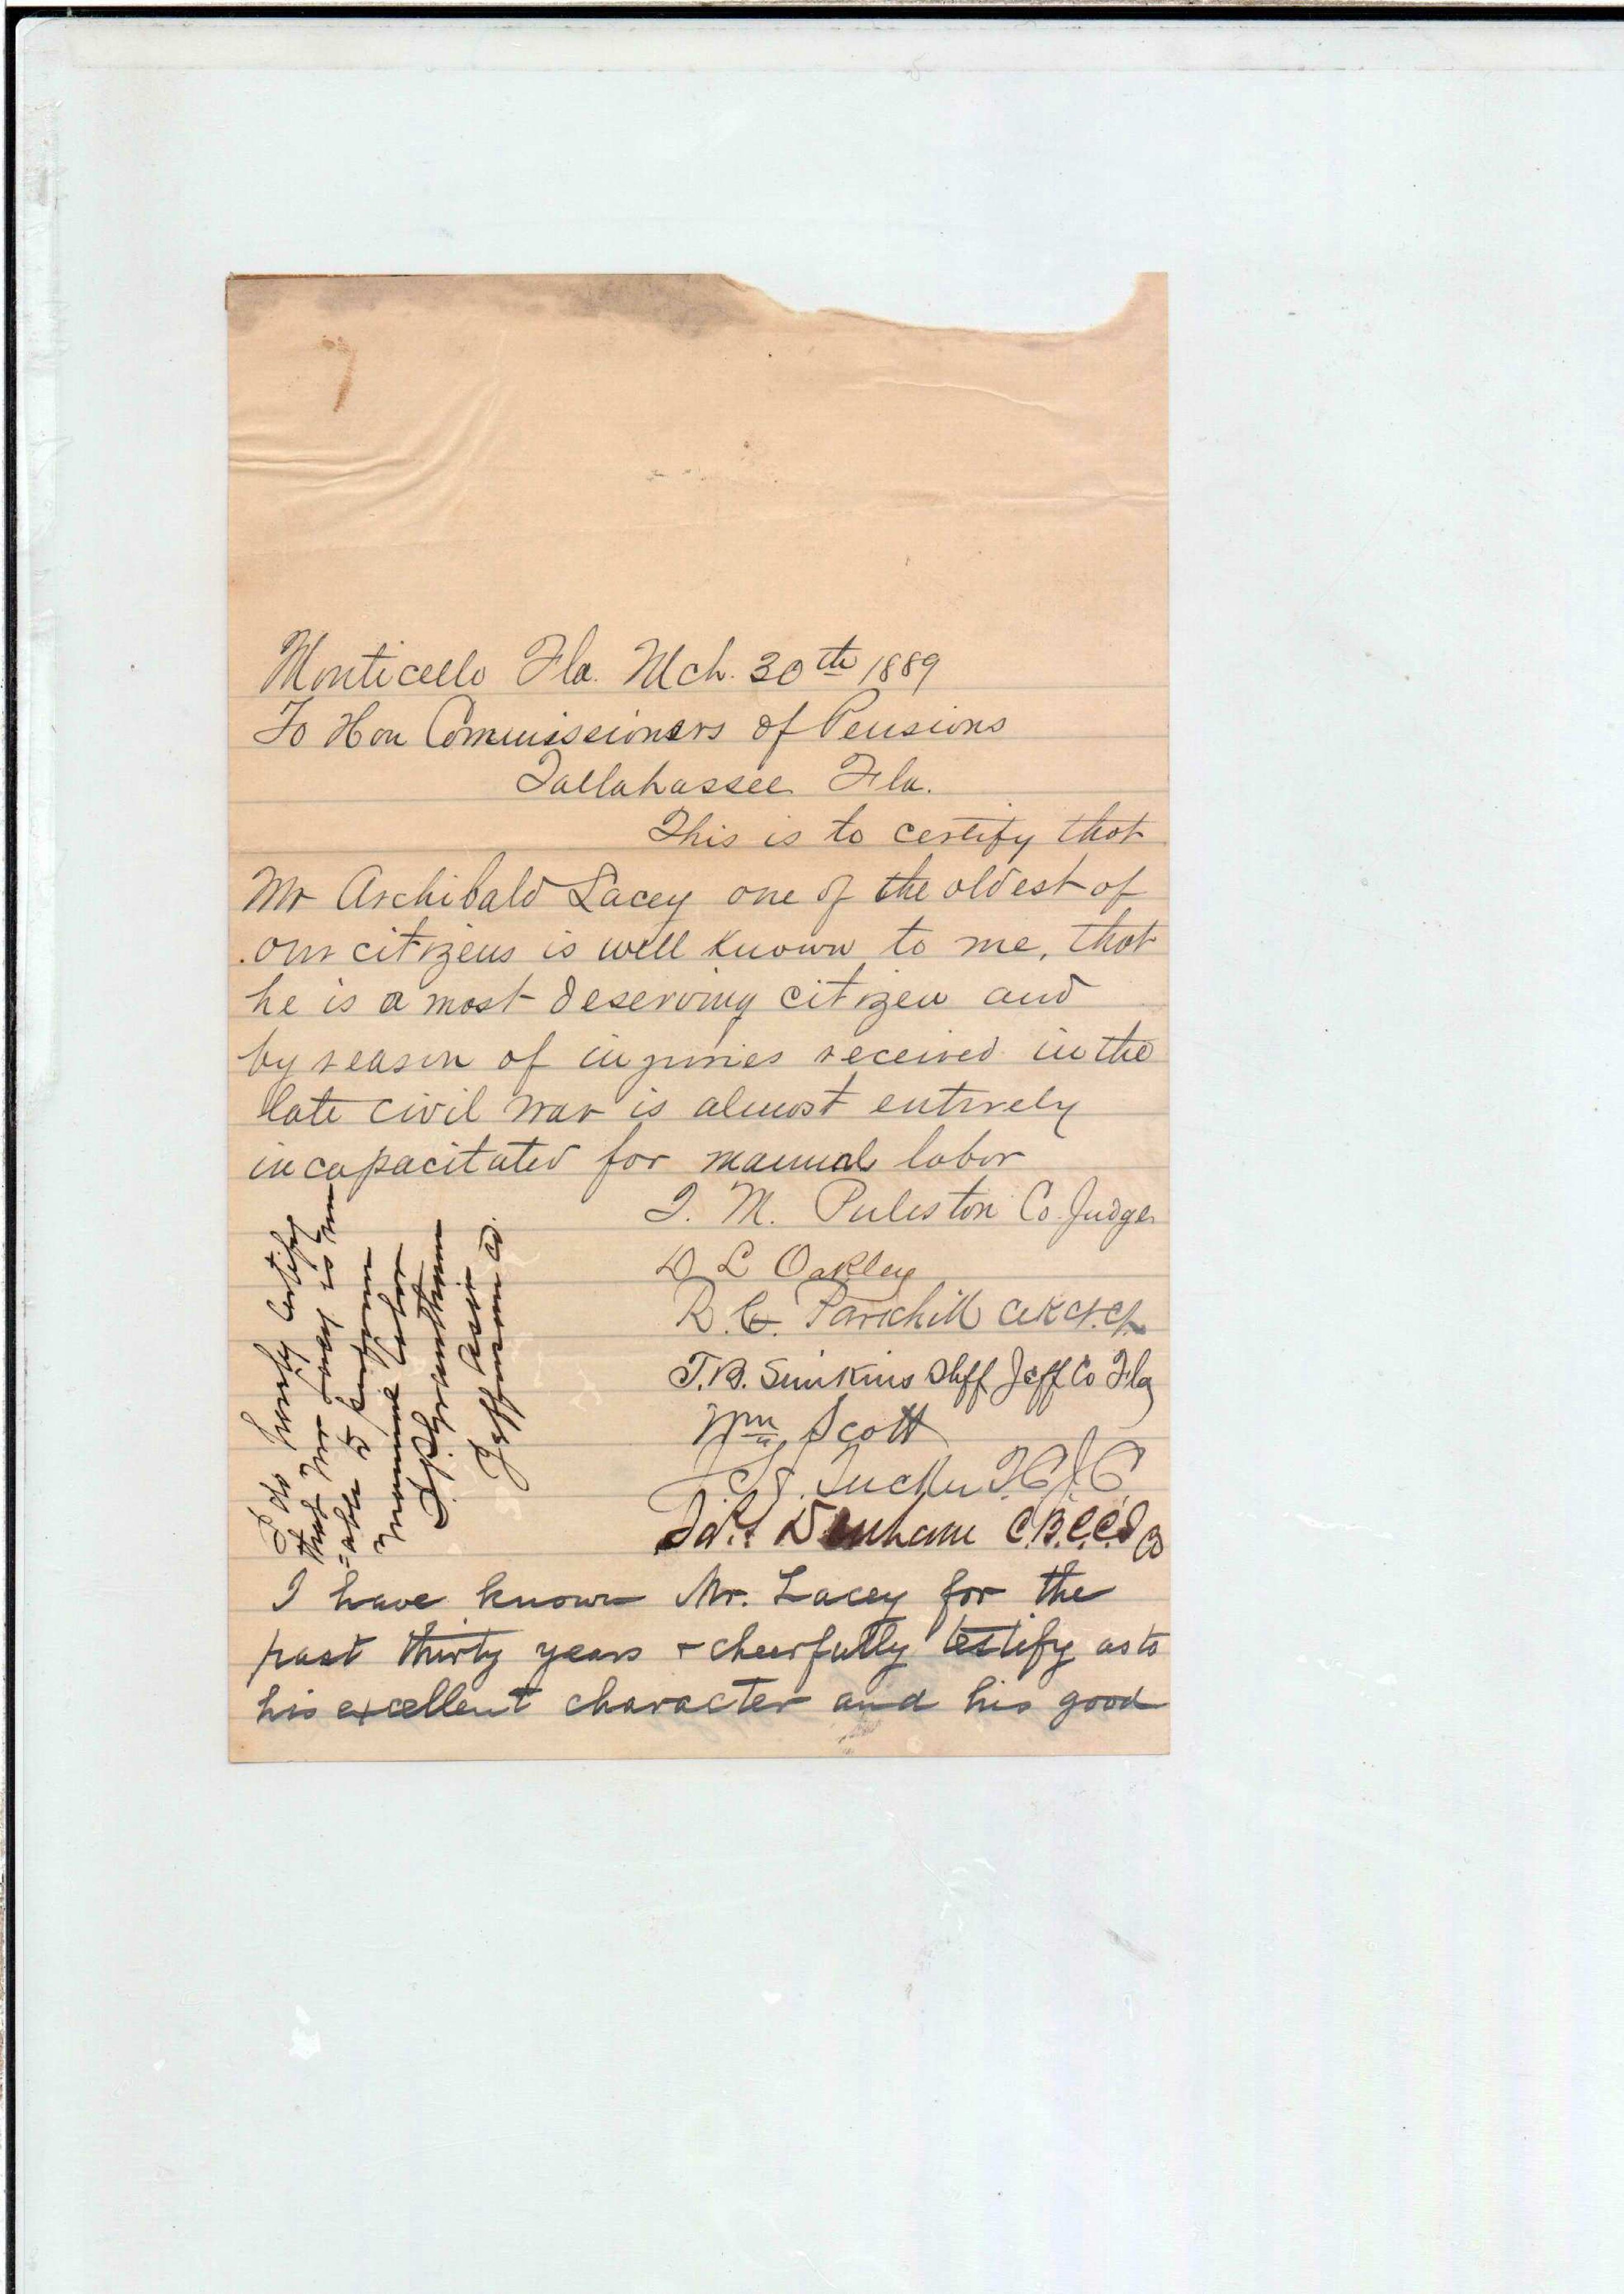 Monticello Fla. Mch. 30th 1889
To Hon Commissioners of Pensions
Tallahassee Fla.
This is to certify that
Mr Archibald Lacey one of the oldest of
our citizens is well known to me, that
he is a most deserving citizen and
by reason of injuries received in the
late civil war is almost entirely
incapacitated for manual labor
T. M. Puleston Co. Judge
D L Oakley
R. C. Parkhill Clk
T. B. Simkins Shff Jeff Co Fla
Wm Scott
Tucker T.C.J.C.
Denham C.B.C.C.J Co
I do hereby certify
that Mr Lacey is un
=able to perform
manual labor
Jefferson Co.
I have known Mr. Lacey for the
past thirty years + cheerfully testify as to
his excellent character and his good